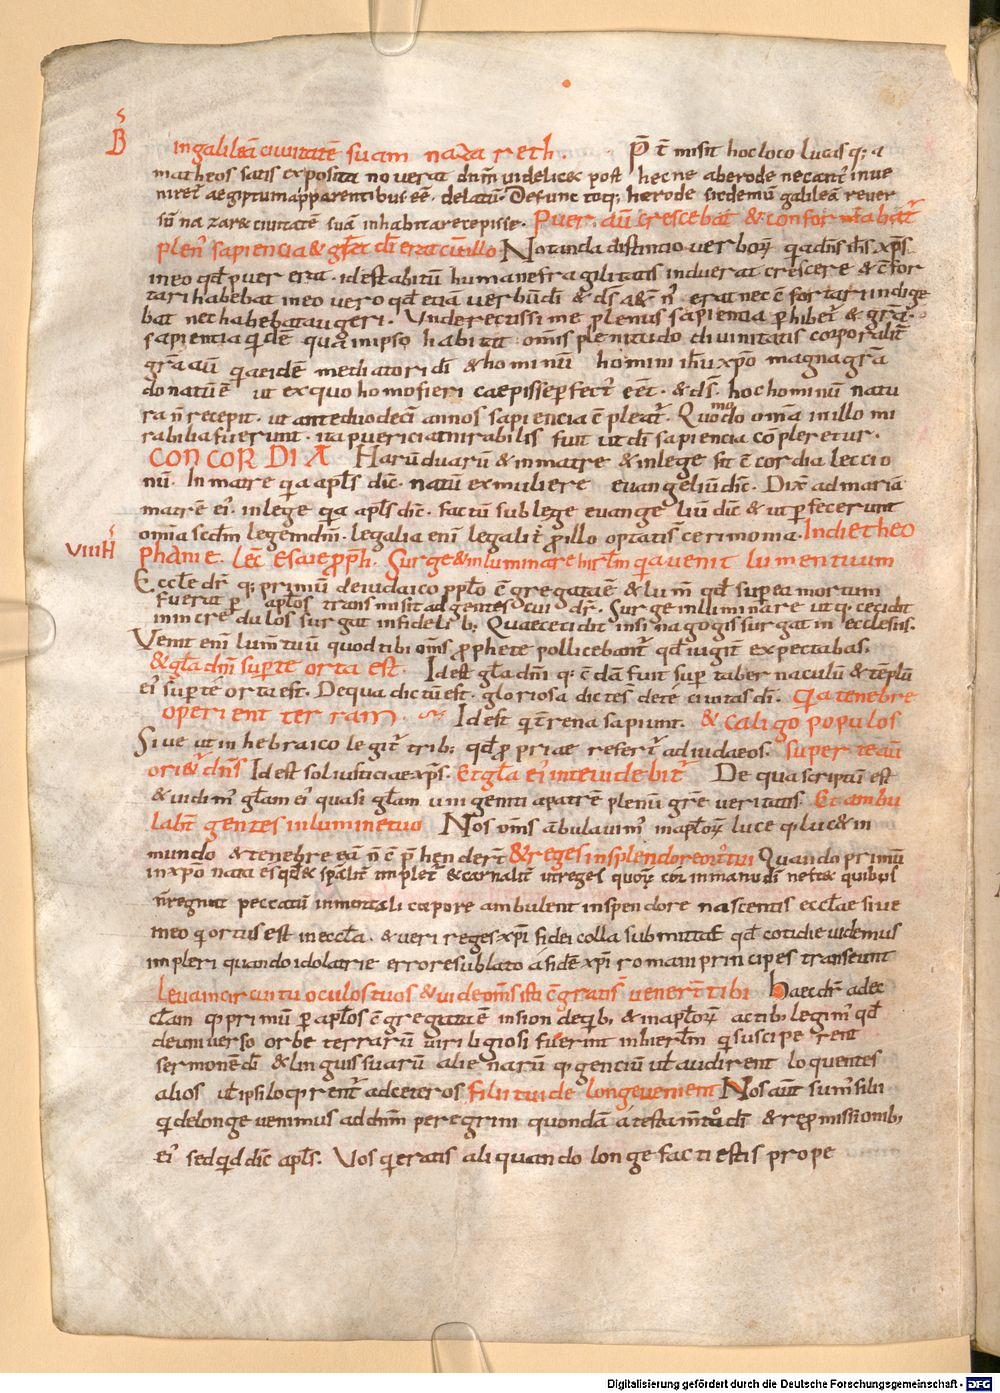 in galileā ciuitatē suam nazareth. P̄t̄misit hoc loco lucas q; a
matheos satis exposita nouerat dn̄m uidelic& post hec ne ab erode necant̄ inue
niret aegiptum apparentibus ēē. delatū. Defunctoq; herode sic demū galileā reuer
sū nazar& ciuitatē suā inhabitare cepisse. Puer aūt crescebat & confortabat̄
plen̄ sapiencia & gr̄a dī erat cū illo Notanda distinctio uerboꝝ qa dn̄s ih̄s xp̄s
in eo qd̄ puer erat. id est abitū humane fragilitatis induerat crescere & c̄for
tari habebat in eo uero qd̄ etiā uerbū dī & dī s̄ a&̄n̄ erat nec c̄fortari indige
bat nec habebat augeri. Vnde rectissime plenus sapiencia phibet̄ & gr̄a.
sapiencia qdē quā in ipso habitat omīs plenitudo diuinitatis corporalit̄
gr̄a aūt qa eidē mediatori dī & hominū homini ih̄u xp̄o magna gr̄a
donatū ē ut ex quo homo fieri caepisse pfect̄ eēt. & ds̄. hoc hominū natu
ra n̄ recepit. ut ante duodeci annos sapiencia c̄pleat̄. Quomodo om̄ia in illo mi
rabilia fuerunt. ita puericia mirabilis fuit ut dī sapiencia cōpleretur.
CONCORDIA Harū duarū & in matre & in lege fit c̄cordia leccio
nū. In matre qa apl̄s dic̄. natū ex muliere euangeliū dic̄. Dix̄ ad mariā
matrē ei᷒. in lege qa apl̄s dic̄. factū sub lege euangeliū dic̄ & ut pfecerunt
om̄ia scdm̄ legem dn̄i. legalia enī legalit̄ p illo optatis cerimonia. In die theo
phanie. Lec̄ Esaie pph̄. Surge & inluminare hierl̄m qa uenit lumen tuum
Eccl̄e dr̄ q; primū de iudaico pplo c̄gregata ē & lum̄ qd̄ sup ea mortum
fuerat p apl̄os transmisit ad gentes cui dr̄. Surge inluminare utq. cecidit
in incredulos surgat in fidelib;. Quae cecidit in sinagogis surgat in ecclesiis.
Venit enī lum̄ tuū quod tibi om̄s pphete pollicebant̄ qd̄ iugit̄ expectabas.
& gl̄a dn̄i sup te orta est. Id est gl̄a dn̄i q; c̄dā fuit sup tabernaculū & tēplū
ei᷒ sup te orta est. De qua dictū est. gloriosa dicta s̄ de te ciuitas dī. Qa tenebre
operient terram. Id est q terrena sapiunt. & caligo populos
Siue ut in hebraico legit̄ trib; qd̄ ppriae refert̄ ad iudaeos. super te aūt
oriet̄ dn̄s Id est sol iusticiae xp̄s. Et gl̄a ei᷒ in te uidebit̄ De qua scriptū est
& uidim̄ gl̄am ei᷒ quasi gl̄am unigeniti a patrē plenū gr̄e ueritatis. Et ambu
labt̄ gentes in lumine tuo Nos om̄s ābulauim̄ in apl̄oꝝ luce q luc& in
mundo & tenebre eā n̄ c̄phendert̄ & reges in splendore ort᷒ tui Quando primū
in xp̄o nata es qd̄ & sp̄alit̄ implet̄ & carnalit̄ ut reges quoꝝ cor in manu dī net& quibus
n̄ regnat peccatū in mortali corpore ambulent in spendore nascentis eccl̄ae siue
in eo q ortus est in eccl̄a. & ueri reges xp̄i fidei colla submittat̄ qd̄ cotidie uidemus
impleri quando idolatrie errore sublato a fidē xp̄i romani principes transeunt
Leua in circuitu oculos tuos & uide om̄s isti c̄gratis̄ uenert̄ tibi Haec dr̄ ad ec
cl̄am q primū p apl̄os c̄gregata ē in sion de qib; & in apl̄oꝝ actib; legim̄ qd̄
de uniuerso orbe terrarū uiri ligiosi fuerint in hierl̄m q susciperent
sermonē dī & linguis suarū alienarū q genciū ul̄ audirent loquentes
alios ul̄ ipsi loqrent̄ ad ceteros filii tui de longe uenient Nos aūt sum̄ filii
q de longe uenimus ad dn̄m peregrini quondā a testam̄to dī & repmissionib;
ei᷒ sed qd dic̄ apl̄s. Vos q eratis aliquando longe facti estis prope
Digitalisierung gefördert durch die Deutsche Forschungsgemeinschaft - DFG